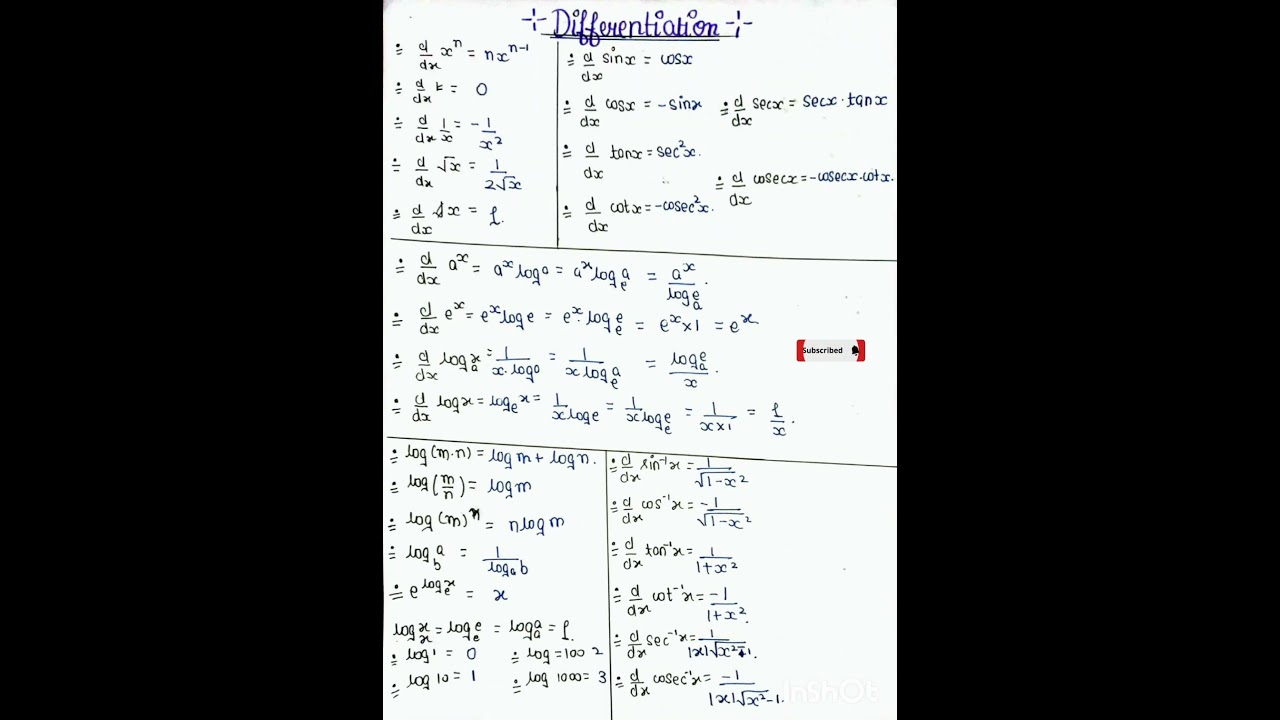 ÷ Differentiation ÷
÷ d/dx x^n = nx^(n-1)
÷ d/dx k = 0
÷ d/dx 1/x = -1/x²
÷ d/dx √x = 1/(2√x)
÷ d/dx 1x = 1.
÷ d/dx sinx = cosx
÷ d/dx cosx = -sinx
÷ d/dx tanx = sec²x.
÷ d/dx cotx = -cosec²x.
÷ d/dx secx = secx·tanx
÷ d/dx cosecx = -cosecx·cotx.
÷ d/dx a^x = a^x log a = a^x log_e a = a^x/(log_a e).
÷ d/dx e^x = e^x log e = e^x·log_e e = e^x×1 = e^x
÷ d/dx log_a x = 1/(x·log a) = 1/(x log_e a) = (log_a e)/x.
÷ d/dx logx = log_e x = 1/(x log e) = 1/(x log_e e) = 1/(x×1) = 1/x.
Subscribed
÷ log(m·n) = log m + log n.
÷ log(m/n) = log m
÷ log(m)^n = n log m
÷ log_b a = 1/(log_a b)
÷ e^(log_e x) = x
log_x x = log_e e = log_a a = 1.
÷ log 1 = 0 ÷ log = 100 2
÷ log 10 = 1 ÷ log 1000 = 3
÷ d/dx sin⁻¹x = 1/√(1-x²)
÷ d/dx cos⁻¹x = -1/√(1-x²)
÷ d/dx tan⁻¹x = 1/(1+x²)
÷ d/dx cot⁻¹x = -1/(1+x²).
÷ d/dx sec⁻¹x = 1/(|x|√(x²-1)).
÷ d/dx cosec⁻¹x = -1/(|x|√x²-1).
InShOt